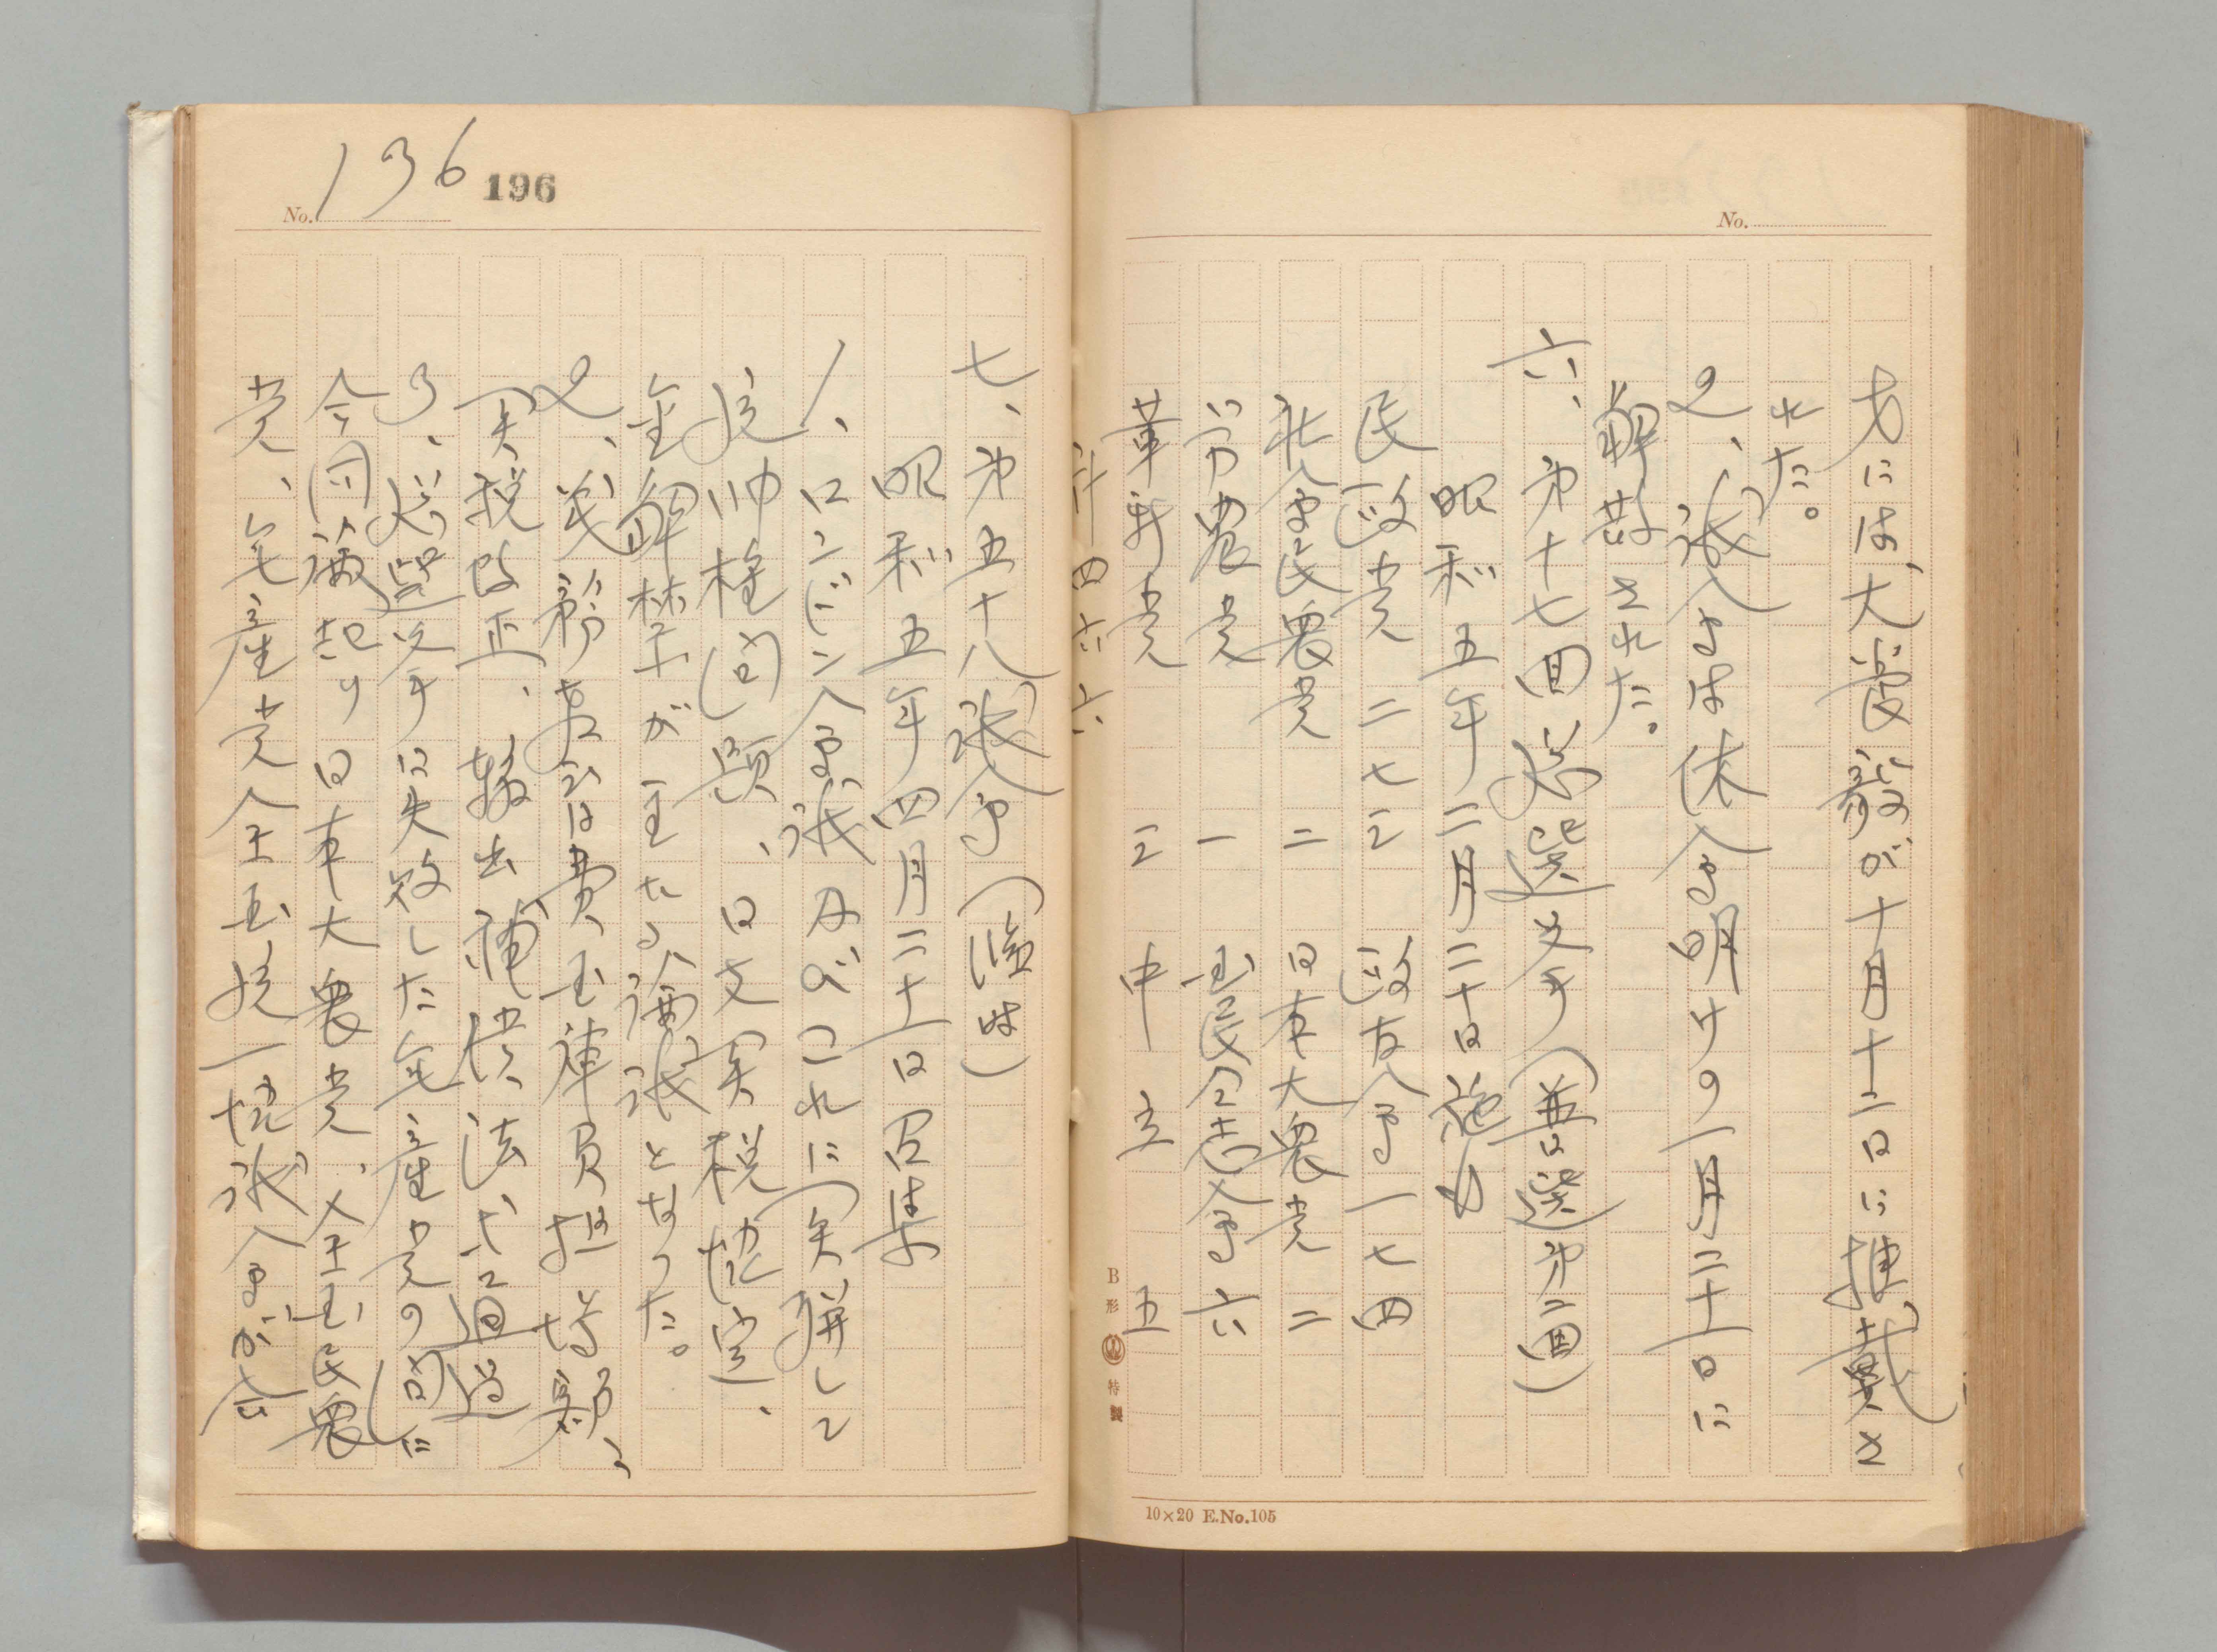 No.
才には、犬養毅が十月十二日に推戴さ
れた。
2、議会は休会明けの一月二十一日に
解散された。
六、第十七回総選挙(普選第二回)
昭和五年二月二十日施行
民政党 二七三 政友会 一七四
社会民衆党 二 日本大衆党 二
労農党 一 国民同志会 六
革新党 三 中立 五
計 四六六
B形 特製
10×20 E.No.105
No. 136 196
七、第五十八議会(臨時)
昭和五年四月二十一日召集
1、ロンドン会議及びこれに関聯して
統帥権問題、日支関税協定、
金解禁等が主たる論議となった。
2、義務教育費国庫負担増額、
関税改正、輸出補償法、は通過
3、総選挙に失敗した無産党の間に
合同論起り日本大衆党、全国民衆
党、無産党全国統一協議会が合